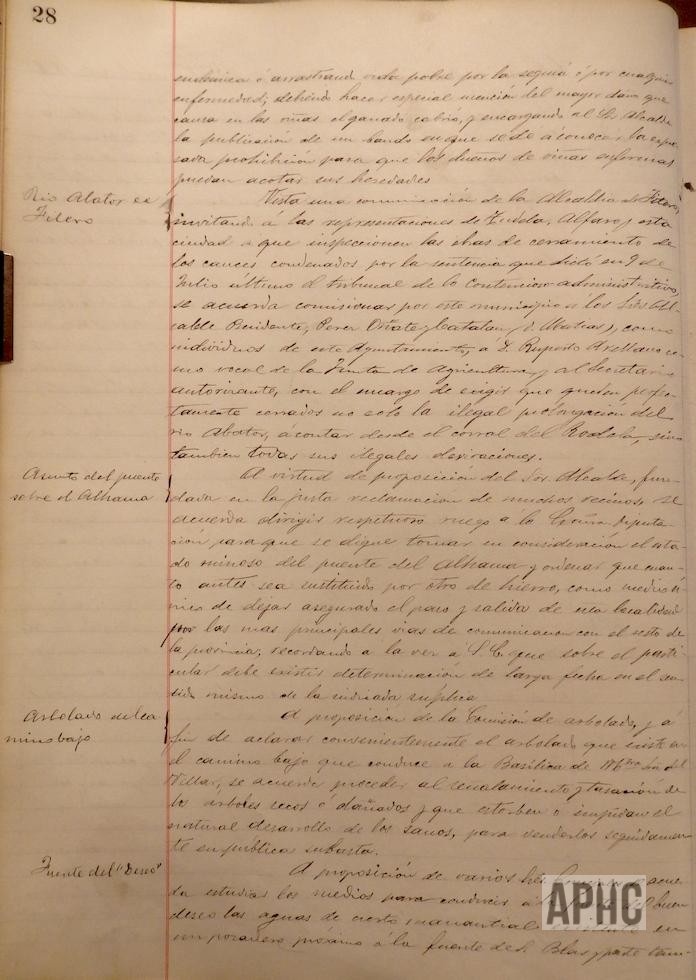 28
endémica ó arrastrand vida pobre por la sequía ó por cualquier
enfermedad; debiendo hacer especial mención del mayor daño que
causa en las viñas el ganado cabrio, y encargando al Sr. Alcalde
la publicación de un bando en que se de a conocer la expre
sada prohibición para que los dueños de viñas enfermas
puedan acotar sus heredades
Rio Abator en
Fitero
Vista una comunicación de la Alcaldía de Fitero,
invitando á las representaciones de Tudela, Alfaro y esta
ciudad a que inspeccionen las obras de cerramiento de
los cauces condenados por la sentencia que dictó en 9 de
Julio último el tribunal de lo contencioso-administrativo,
se acuerda comisionar por este municipio a los Sres Al
calde Presidente, Perez Oñate y Catalan (D. Matias), como
individuos de este Ayuntamiento, á D. Ruperto Arellano co
mo vocal de la Junta de Agricultura y al Secretario
autorizante, con el encargo de exigir que queden perfec
tamente cerrados no solo la ilegal prolongacion del
rio Abator, á contar desde el corral del sino
tambien todas sus ilegales derivaciones.
Asunto del puente
sobre el Alhama
Al virtud de proposición del Sor. Alcalde, fun
dada en la justa reclamacion de muchos vecinos, se
acuerda dirigir respetuoso ruego a la Excma Diputa
ción para que se digne tomar en consideración el esta
do ruinoso del puente del Alhama y ordenar que cuan
to antes sea sustituido por otro de hierro, como medio ú
nico de dejar asegurado el paso y salida de esta localidad
por las mas principales vias de comunicacion con el resto de
la provincia, recordando a la vez a S. E. que sobre el parti
cular debe existir determinación de larga fecha en el sen
tido mismo de la indicada súplica
Arbolado del ca
mino bajo
A proposicion de la Comisión de arbolado, y á
fin de aclarar convenientemente el arbolado que existe en
el camino bajo que conduce a la Basilica de Ntra Sra del
Villar, se acuerda proceder al señalamiento y tasación de
los arboles secos ó dañados y que estorben o impidan el
natural desarrollo de los sanos, para venderlos seguidamen
te en publica subasta.
Fuente del "Deseo"
A proposición de varios Sres se acuer
da estudiar los medios para conducir á la del buen
deseo las aguas de cierto manantial en
un proximo a la fuente de S. Blas y parte tam-
APHC